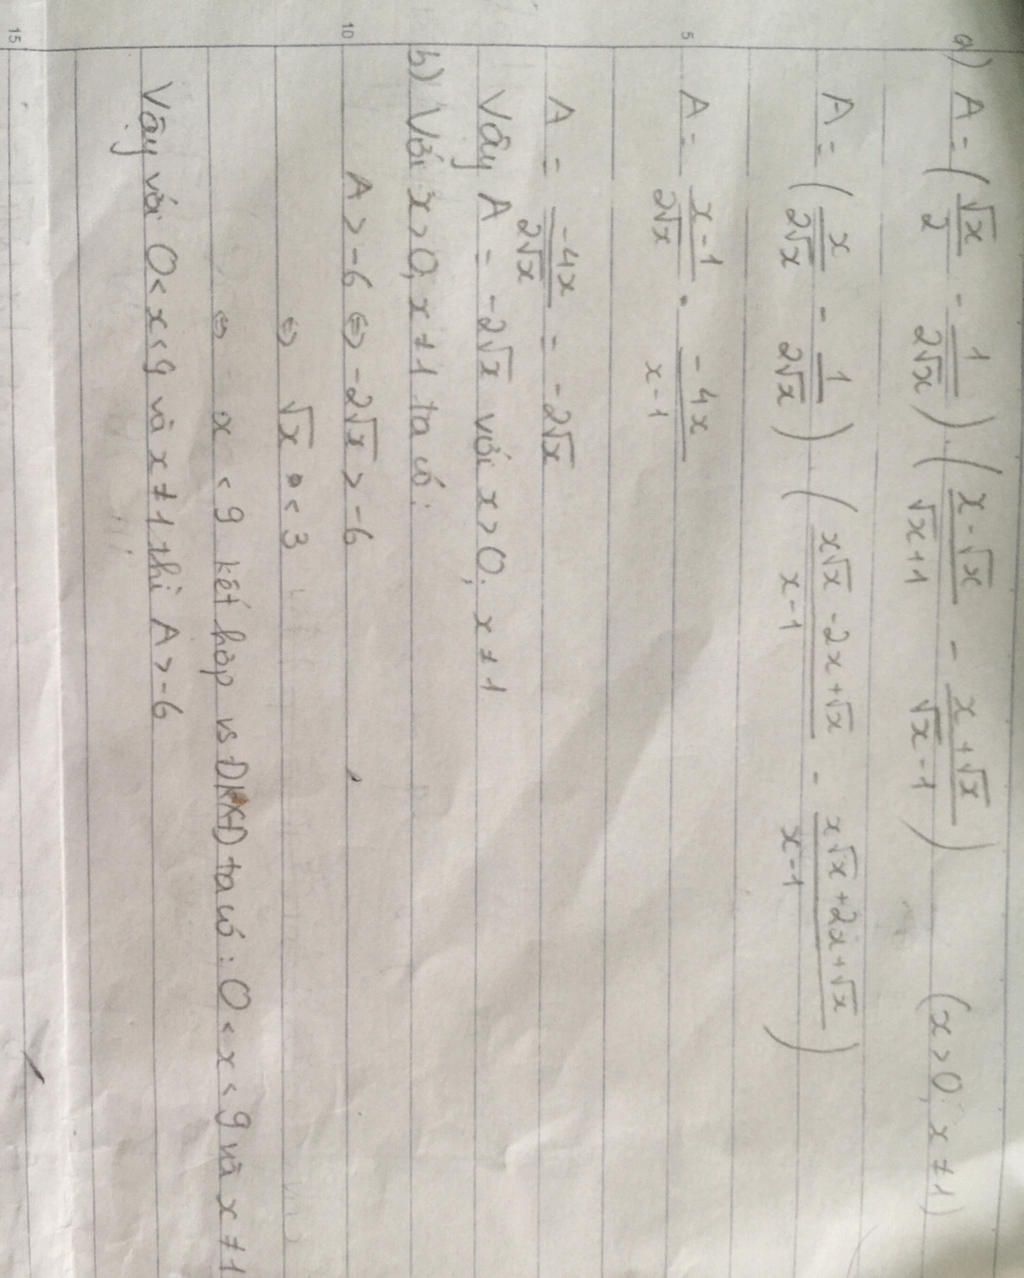 a) A = (√x/2 - 1/2√x) . (x-√x/√x+1 - x+√x/√x-1) (x>0; x≠1)
A = (x/2√x - 1/2√x) . (x√x-2x+√x/x-1 - x√x+2x+√x/x-1)
5
A = x-1/2√x . -4x/x-1
A = -4x/2√x = -2√x
Vậy A = -2√x với x>0; x≠1
b) Với x>0, x≠1 ta có:
10
A>-6 ⇔ -2√x > -6
⇔ √x < 3
⇔ x < 9 kết hợp vs ĐKXĐ ta có: 0 < x < 9 và x≠1
Vậy với 0<x<9 và x≠1 thì A>-6
15